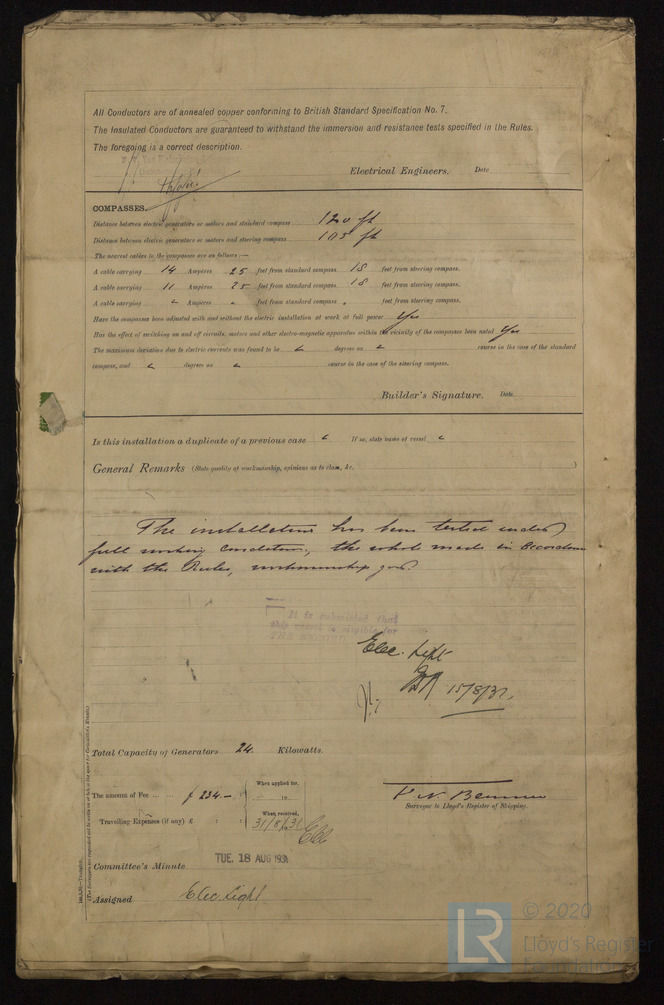 All Conductors are of annealed copper conforming to British Standard Specification No. 7.
The Insulated Conductors are guaranteed to withstand the immersion and resistance tests specified in the Rules.
The foregoing is a correct description.
Electrical Engineers. Date
COMPASSES.
Distance between electric generators or motors and standard compass 120 ft
Distance between electric generators or motors and steering compass 105 ft
The nearest cables to the compasses are as follows:—
A cable carrying 14 Ampères 25 feet from standard compass 18 feet from steering compass.
A cable carrying 11 Ampères 25 feet from standard compass 18 feet from steering compass.
A cable carrying Ampères feet from standard compass feet from steering compass.
Have the compasses been adjusted with and without the electric installation at work at full power Yes
Has the effect of switching on and off circuits, motors and other electro-magnetic apparatus within the vicinity of the compasses been noted Yes
The maximum deviation due to electric currents was found to be degrees on course in the case of the standard
compass, and degrees on course in the case of the steering compass.
Builder's Signature. Date
Is this installation a duplicate of a previous case If so, state name of vessel
General Remarks (State quality of workmanship, opinions as to class, &c. )
The installation has been tested under
full working conditions, the whole made in accordance
with the Rules, workmanship good.
It is submitted that
this vessel is eligible for
THE RECORD
Elec. Light
15/8/31.
Total Capacity of Generators 24. Kilowatts.
The amount of Fee ... ... £ 234.—
When applied for,
Travelling Expenses (if any) £ : :
When received,
31/8/31
Surveyor to Lloyd's Register of Shipping.
Committee's Minute TUE. 18 AUG 1931
Assigned Elec. Light
© 2020
LR
Lloyd's Register
Foundation